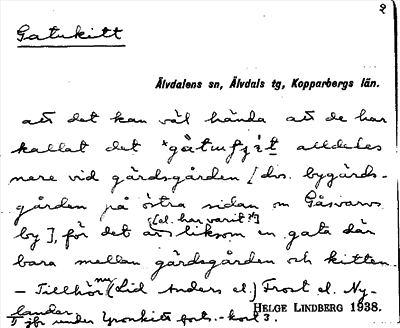 2
Gatukitt
Älvdalens sn, Älvdals tg, Kopparbergs län.
att det kan väl hända att de har
kallat det *gåtufjit alldeles
nere vid gärdsgården [dvs. bygärds-
gården på östra sidan om Gåsvarvs
[el. har varit?]
by], för det är liksom en gata där
bara mellan gärdsgården och kitten.
– Tillhör nu (Lid Anders el.) Frost el. Ny-
lander.
HELGE LINDBERG 1938.
jfr under forts. - kort 3.